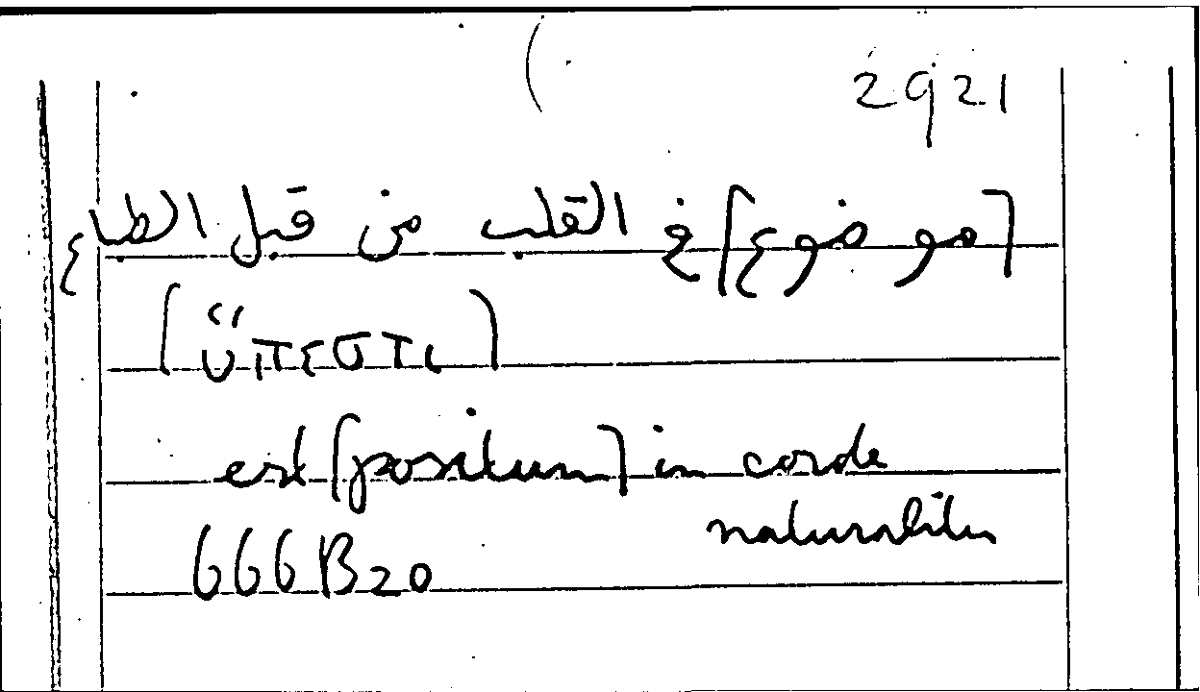 2921
[موضوع] في القلب من قبل الطباع
(ὕπεστι)
est [positum] in corde
naturaliter
666B20